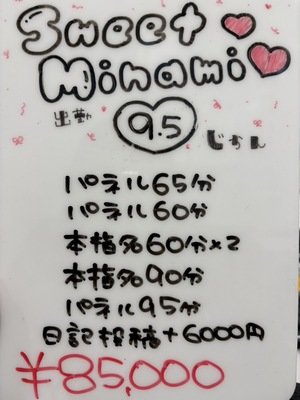 Sweet
Minami
出勤 9.5 じかん
パネル65分
パネル60分
本指名60分×2
本指名90分
パネル95分
日記投稿+6000円
¥85,000